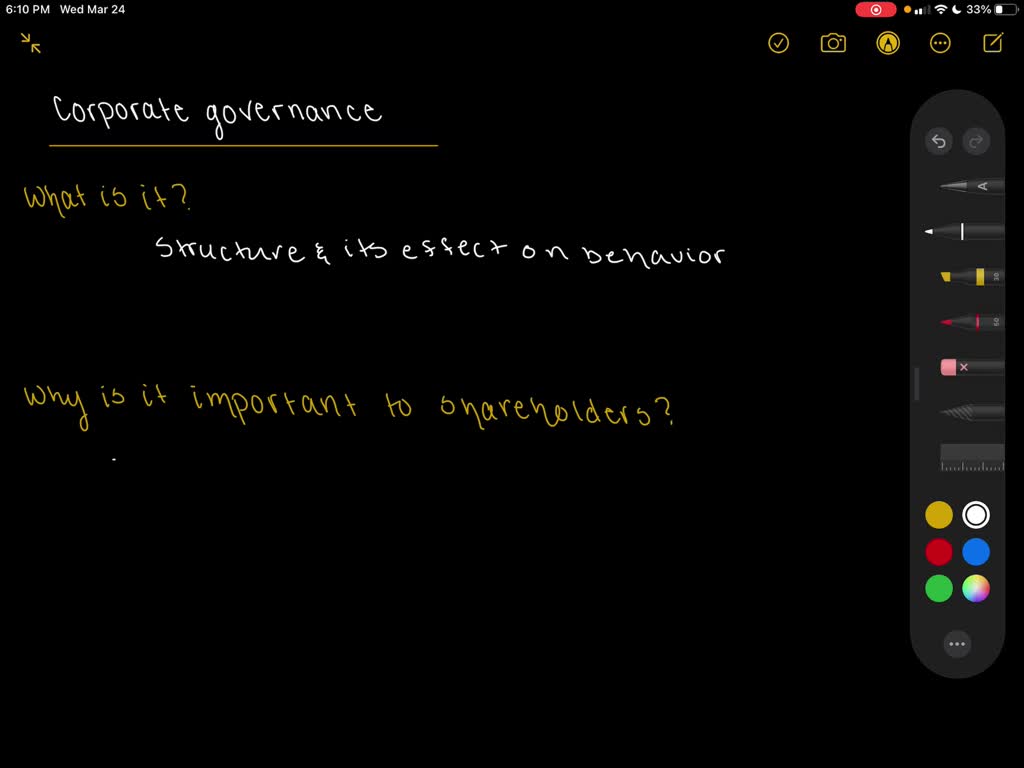 6:10 PM Wed Mar 24
33%
Corporate governance
What is it?
Structure & its effect on behavior
Why is it important to shareholders?
A
30
50